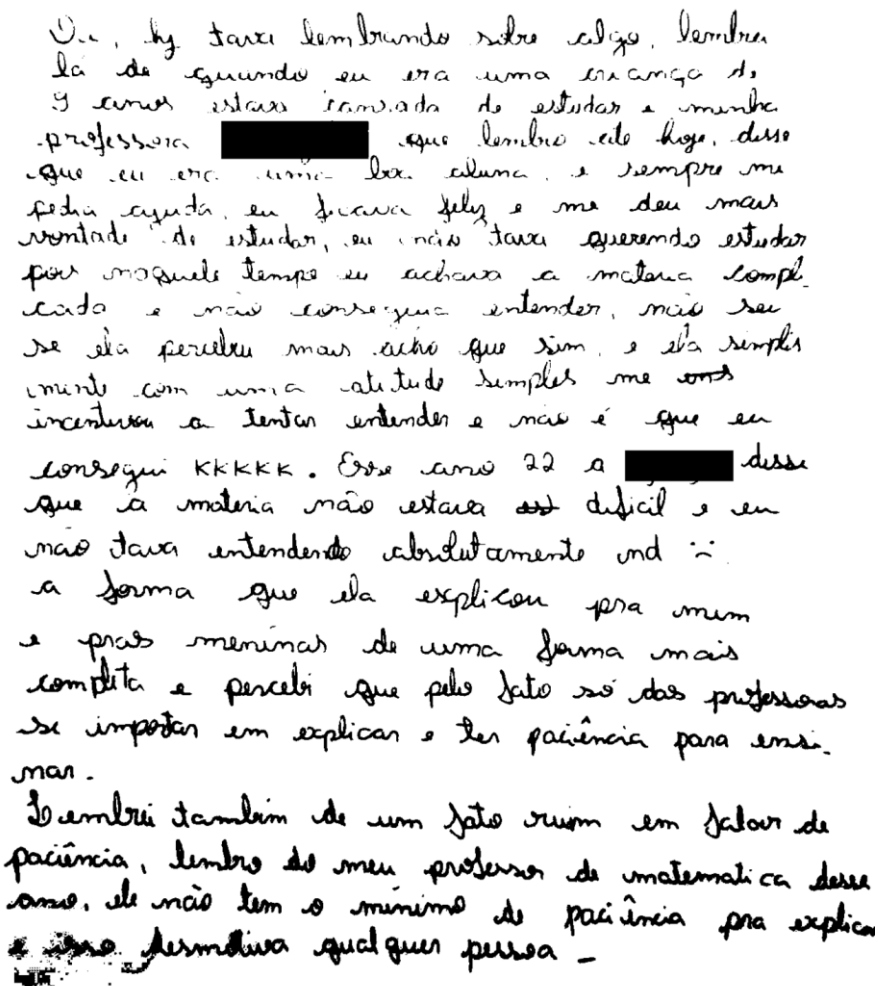 Oi, hj tava lembrando sobre algo, lembrei
lá de quando eu era uma criança de
9 anos estava cansada de estudar e minha
professora que lembro até hoje, disse
que eu era uma boa aluna, e sempre me
pedia ajuda, eu ficava feliz e me deu mais
vontade de estudar, eu não tava querendo estudar
pois naquele tempo eu achava a materia compli
cada e não conseguia entender, não sei
se ela percebeu mais acho que sim, e ela simples
mente com uma atitude simples me
incentivou a tentar entender e não é que eu
consegui KKKKK. Esse ano 22 a disse
que a materia não estava dificil e eu
não tava entendendo absolutamente nd :(
a forma que ela explicou pra mim
e pras meninas de uma forma mais
completa e percebi que pelo fato só das professoras
se importar em explicar e ter paciência para ensi-
nar.
Lembrei também de um fato ruim em falar de
paciência, lembro do meu professor de matematica desse
ano, ele não tem o minimo de paciência pra explicar
e isso desmotiva qualquer pessoa -